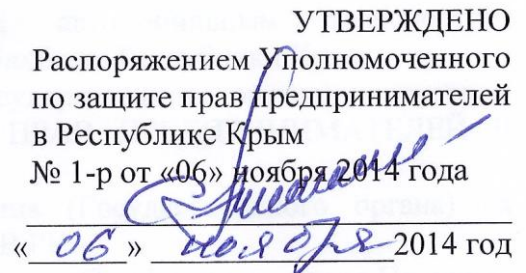 УТВЕРЖДЕНО
Распоряжением Уполномоченного
по защите прав предпринимателей
в Республике Крым
№ 1-р от «06» ноября 2014 года
«06» ноября 2014 год